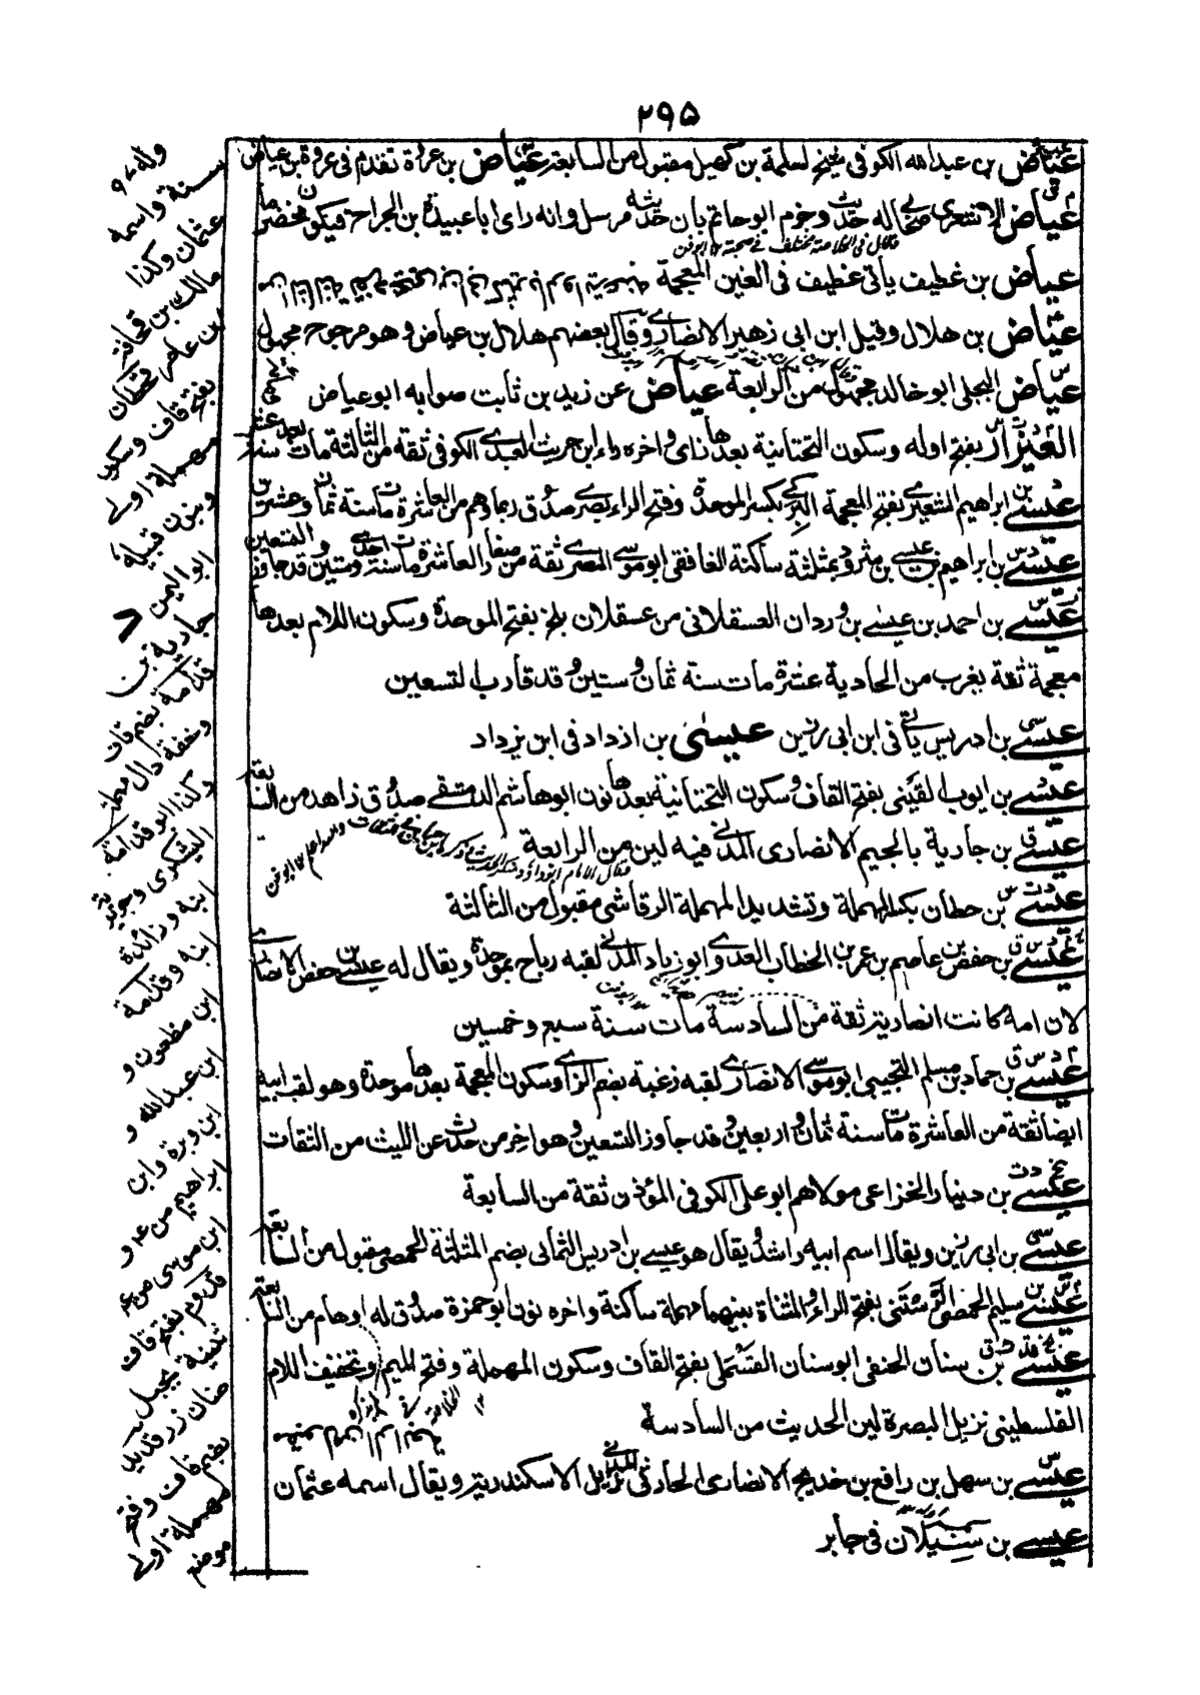 ٢٩٥
عياض بن عبدالله الكوفي شيخ لسلمة بن كهيل مقبول من السابعة عياض بن عروة تقدم في عروة بن عياض
عياض الاشعري صحابي له حديث وجزم ابو حاتم بان حديثه مرسل وانه راى ابا عبيدة بن الجراح فيكون مخضرما
عياض بن غطيف ياتي غطيف في الغين المعجمة
عياض بن هلال وقيل ابن ابي زهير الانصاري وقال بعضهم هلال بن عياض وهو مرجوح مجهول
عياض البجلي ابو خالد مجهول من الرابعة عياض عن زيد بن ثابت صوابه ابو عياض
العيزار بفتح اوله وسكون التحتانية بعدها زاى واخره راء ابن حريث العبدي الكوفي ثقة من الثالثة مات بعد سنة عشر
عيسى بن ابراهيم الشعيري بفتح المعجمة البركي بكسر الموحدة وفتح الراء بصري صدوق ربما وهم من العاشرة مات سنة ثمان وعشرين
عيسى بن ابراهيم بن عيسى بن مثرود بمثلثة ساكنة الغافقي ابو موسى المصري ثقة من صغار العاشرة مات سنة احدى وستين وقد جاوز التسعين
عيسى بن احمد بن عيسى بن وردان العسقلاني من عسقلان بلخ بفتح الموحدة وسكون اللام بعدها
معجمة ثقة يغرب من الحادية عشرة مات سنة ثمان وستين وقد قارب التسعين
عيسى بن ادريس ياتي في ابن ابي رزين عيسى بن ازداد في ابن يزداد
عيسى بن ايوب القيني بفتح القاف وسكون التحتانية بعدها نون ابو هاشم الدمشقي صدوق زاهد من التاسعة
عيسى بن جارية بالجيم الانصارى المدني فيه لين من الرابعة
عيسى بن حطان بكسر المهملة وتشديد المهملة الرقاشي مقبول من الثالثة
عيسى بن حفص بن عاصم بن عمر بن الخطاب العدوي ابو زياد المدني لقبه رباح بموحدة ويقال له عيسى بن حفص الانصاري
لان امه كانت انصارية ثقة من السادسة مات سنة سبع وخمسين
عيسى بن حماد بن مسلم التجيبي ابو موسى الانصاري لقبه زغبة بضم الزاى وسكون المعجمة بعدها موحدة وهو لقب ابيه
ايضا ثقة من العاشرة مات سنة ثمان واربعين وقد جاوز التسعين وهو اخر من حدث عن الليث من الثقات
عيسى بن دينار الخزاعي مولاهم ابو علي الكوفي المؤذن ثقة من السابعة
عيسى بن ابي رزين ويقال اسم ابيه راشد ويقال هو عيسى بن ادريس الثمالي بضم المثلثة الحمصي مقبول من السابعة
عيسى بن سليم الحمصي الرستني بفتح الراء والمثناة بينهما مهملة ساكنة واخره نون ابو حمزة صدوق له اوهام من السابعة
عيسى بن سنان الحنفي ابو سنان القسملي بفتح القاف وسكون المهملة وفتح الميم وتخفيف اللام
الفلسطيني نزيل البصرة لين الحديث من السادسة
عيسى بن سهل بن رافع بن خديج الانصارى الحارثي المدني نزيل الاسكندرية ويقال اسمه عثمان
عيسى بن سيلان في جابر
وله ٩٠
سنة واسمه
عثمان وكذا
مالك بن قحافة
ابن عامر قحطان
بفتح قاف وسكون
مهملة اولى
وبنون قبيلة
ابو اليمن
جارية بن
قدامة بضم قاف
وخفة دال مهملة
وكذا ابو قدامة
اليشكرى وجويرية
ابنه وزائدة
ابنه وقدامة
ابن مظعون و
ابن عبدالله و
ابن وبرة وابن
ابراهيم من ٤ و
ابن موسى من ع
قدوم بفتح قاف
ثنية بجبل
بضم قاف وفتح
مهملة اولى